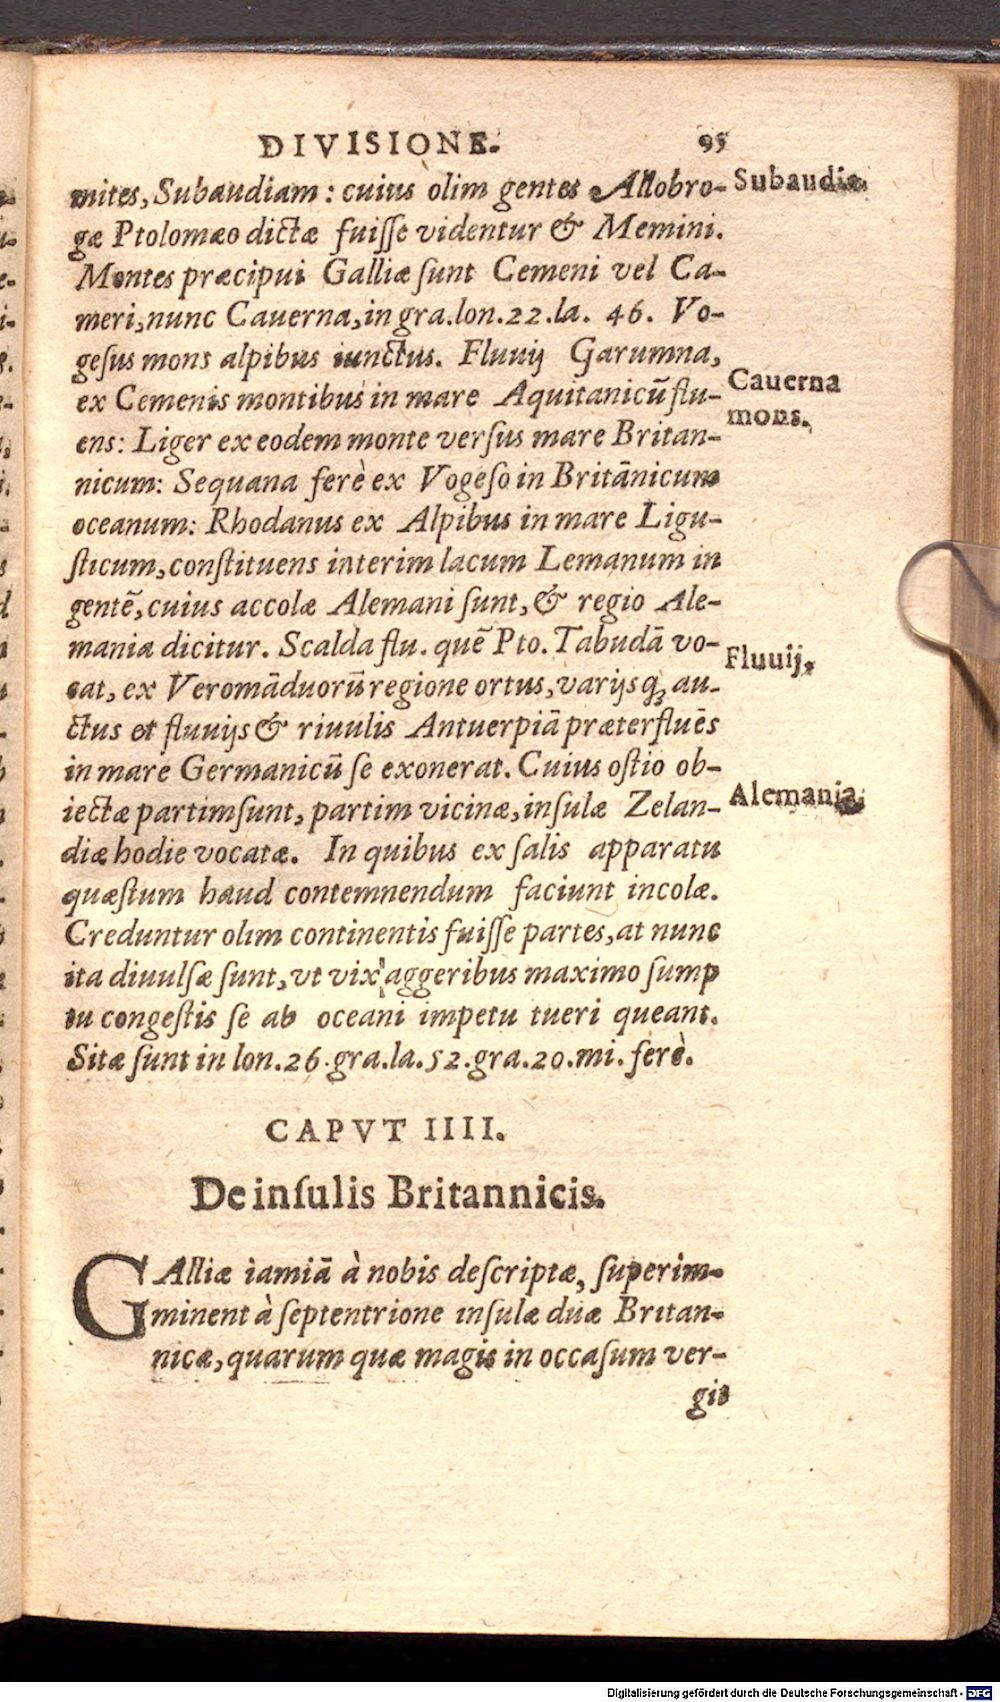 DIVISIONE. 95
mites, Subaudiam: cuius olim gentes Allobro-
gæ Ptolomæo dictæ fuiſſe videntur & Memini.
Montes præcipui Galliæ ſunt Cemeni vel Ca-
meri, nunc Cauerna, in gra.lon.22.la. 46. Vo-
geſus mons alpibus iunctus. Fluuij Garumna,
ex Cemenis montibus in mare Aquitanicū flu-
ens: Liger ex eodem monte verſus mare Britan-
nicum: Sequana ferè ex Vogeſo in Britānicum
oceanum: Rhodanus ex Alpibus in mare Ligu-
ſticum, conſtituens interim lacum Lemanum in
gentē, cuius accolæ Alemani ſunt, & regio Ale-
mania dicitur. Scalda flu. quē Pto. Tabudā vo-
cat, ex Veromāduorū regione ortus, varijsq́; au-
ctus et fluuijs & riuulis Antuerpiā præterfluēs
in mare Germanicū ſe exonerat. Cuius oſtio ob-
iectæ partim ſunt, partim vicinæ, inſulæ Zelan-
diæ hodie vocatæ. In quibus ex ſalis apparatu
quæſtum haud contemnendum faciunt incolæ.
Creduntur olim continentis fuiſſe partes, at nunc
ita diuulſæ ſunt, vt vix aggeribus maximo ſump
tu congeſtis ſe ab oceani impetu tueri queant.
Sitæ ſunt in lon.26.gra.la.52.gra.20.mi. ferè.
Subaudia.
Cauerna
mons.
Fluuij.
Alemania.
CAPVT IIII.
De inſulis Britannicis.
GAlliæ iamiā à nobis deſcriptæ, ſuperim-
minent à ſeptentrione inſulæ duæ Britan-
nicæ, quarum quæ magis in occaſum ver-
git
Digitalisierung gefördert durch die Deutsche Forschungsgemeinschaft - DFG